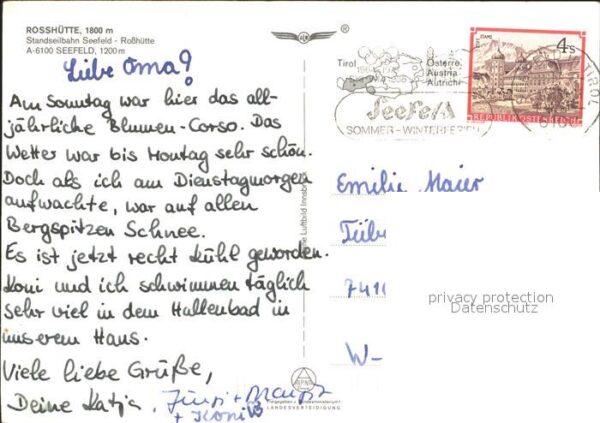 ROSSHÜTTE, 1800 m
Standseilbahn Seefeld - Roßhütte
A-6100 SEEFELD, 1200 m
Liebe Oma!
Am Sonntag war hier das all-
jährliche Blumen-Corso. Das
Wetter war bis Montag sehr schön.
Doch als ich am Dienstagmorgen
aufwachte, war auf allen
Bergspitzen Schnee.
Es ist jetzt recht kühl geworden.
Koni und ich schwimmen täglich
sehr viel in dem Hallenbad in
unserem Haus.
Viele liebe Grüße,
Deine Katja,
+ Koni
Luftbild Innsbr
Tirol
Österre
Austria
Autrich
Seefeld
SOMMER - WINTERFERIEN
TIROL
STIFT STAMS
4 S
REPUBLIK ÖSTERREICH
Emilie Maier
Tüb
741
W-
privacy protection
Datenschutz
LANDESVERTEIDIGUNG